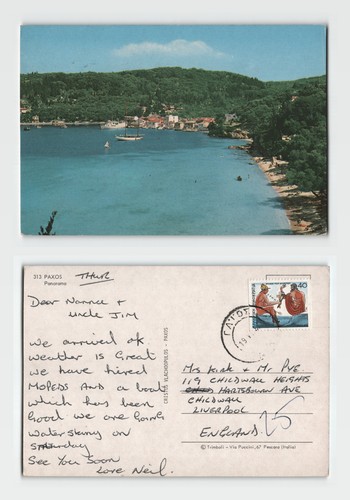 313 PAXOS
Panorama
THUR
Dear Nannie +
Uncle JIM
We arrived ok
weather is Great
we have hired
MOPEDS AND a boat
which has been
Good we are going
Waterskiing on
Saturday
See You Soon
Love Neil.
CRISTOS VLACHOPULOS - PAXOS
40
Ms Kirk + Mr Pye
119 CHILDWALL HEIGHTS
HARTSBOURN AVE
CHILDWALL
LIVERPOOL
ENGLAND
25
© Trimboli - Via Puccini, 47 Pescara (Italia)